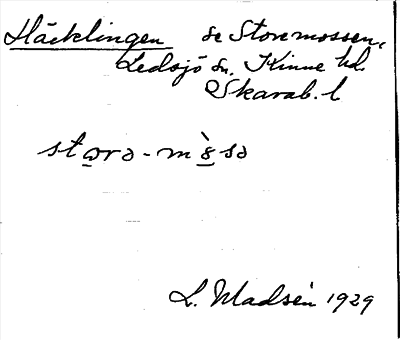 Häcklingen se Storemossen,
Ledsjö sn. Kinne hd.
Skarab. l
L. Madsén 1929